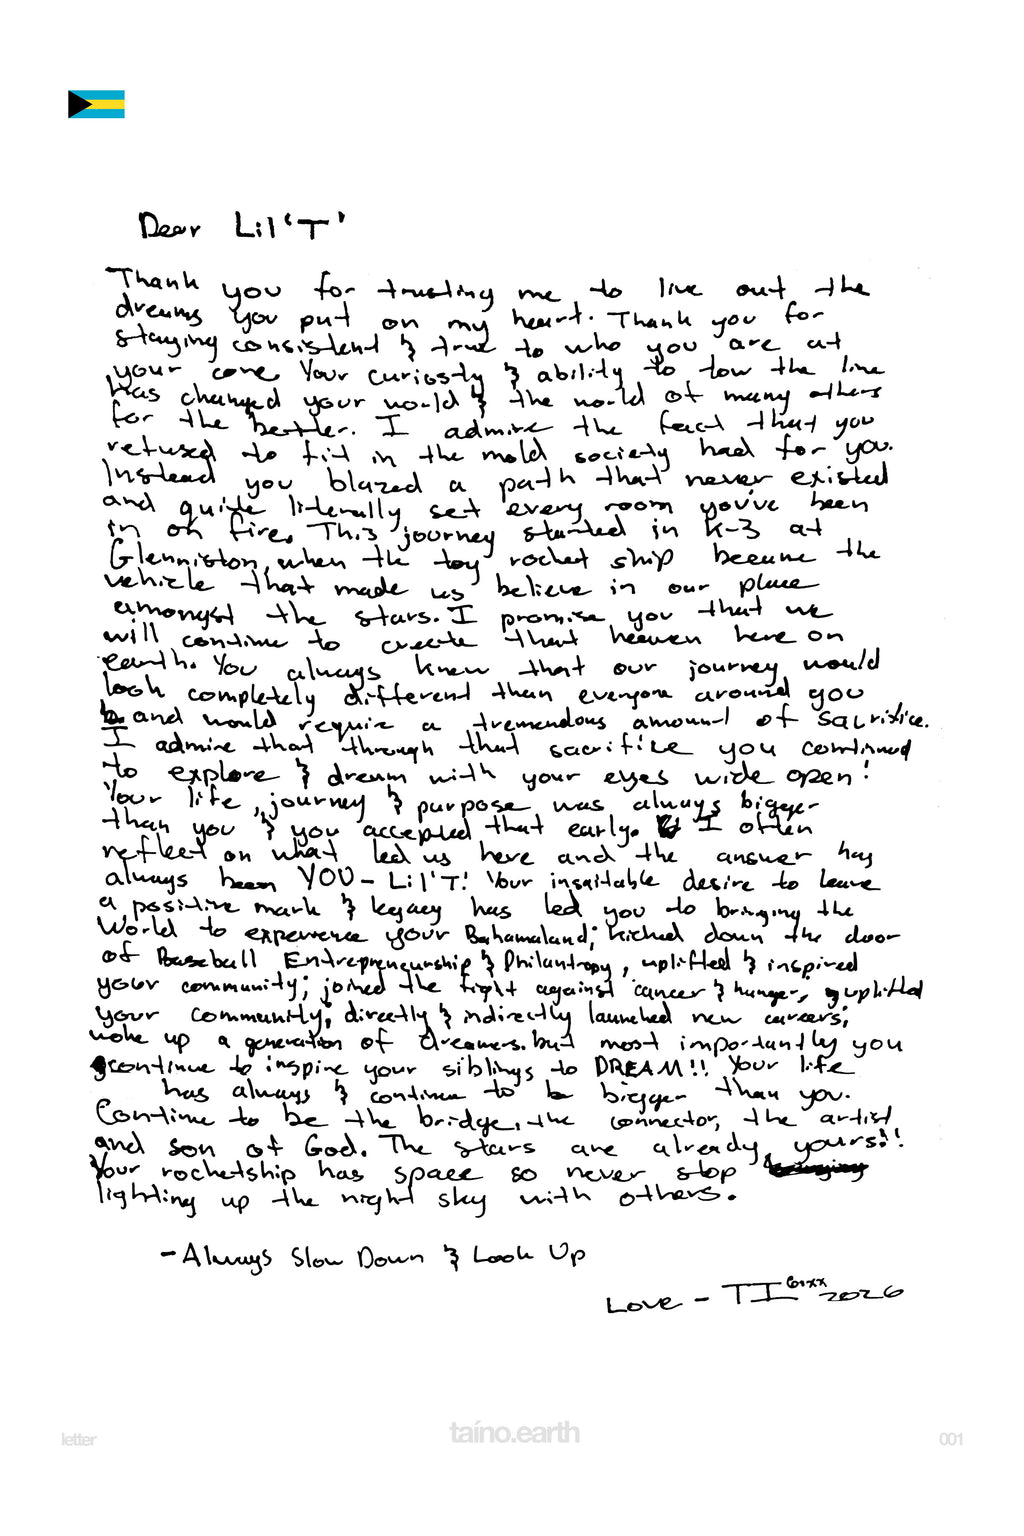 Dear Lil 'T'
Thank you for trusting me to live out the
dreams you put on my heart. Thank you for
staying consistent & true to who you are at
your core. Your curiosty & ability to tow the line
has changed your world & the world of many others
for the better. I admire the fact that you
refused to fit in the mold society had for you.
Instead you blazed a path that never existed
and quite literally set every room you've been
in on fire. This journey started in K-3 at
Glenniston, when the toy rocket ship became the
vehicle that made us believe in our place
amongst the stars. I promise you that we
will continue to create that heaven here on
earth. You always knew that our journey would
look completely different than everyone around you
and would require a tremendous amount of sacrifice.
I admire that through that sacrifice you continued
to explore & dream with your eyes wide open!
Your life, journey & purpose was always bigger
than you & you accepted that early. I often
reflect on what led us here and the answer has
always been YOU - Lil'T! Your insaitable desire to leave
a positive mark & legacy has led you to bringing the
World to experience your Bahamaland; kicked down the door
of Baseball Entrepreneurship & Philantropy, uplifted & inspired
your community; joined the fight against cancer & hunger, uplifted
your community; directly & indirectly launched new careers;
woke up a generation of dreamers. but most importantly you
continue to inspire your siblings to DREAM!! Your life
has always & continue to be bigger than you.
Continue to be the bridge, the connector, the artist
and son of God. The stars are already yours!!
Your rocketship has space so never stop
lighting up the night sky with others.
- Always Slow Down & Look Up
Love - TI 2026
letter
taíno.earth
001